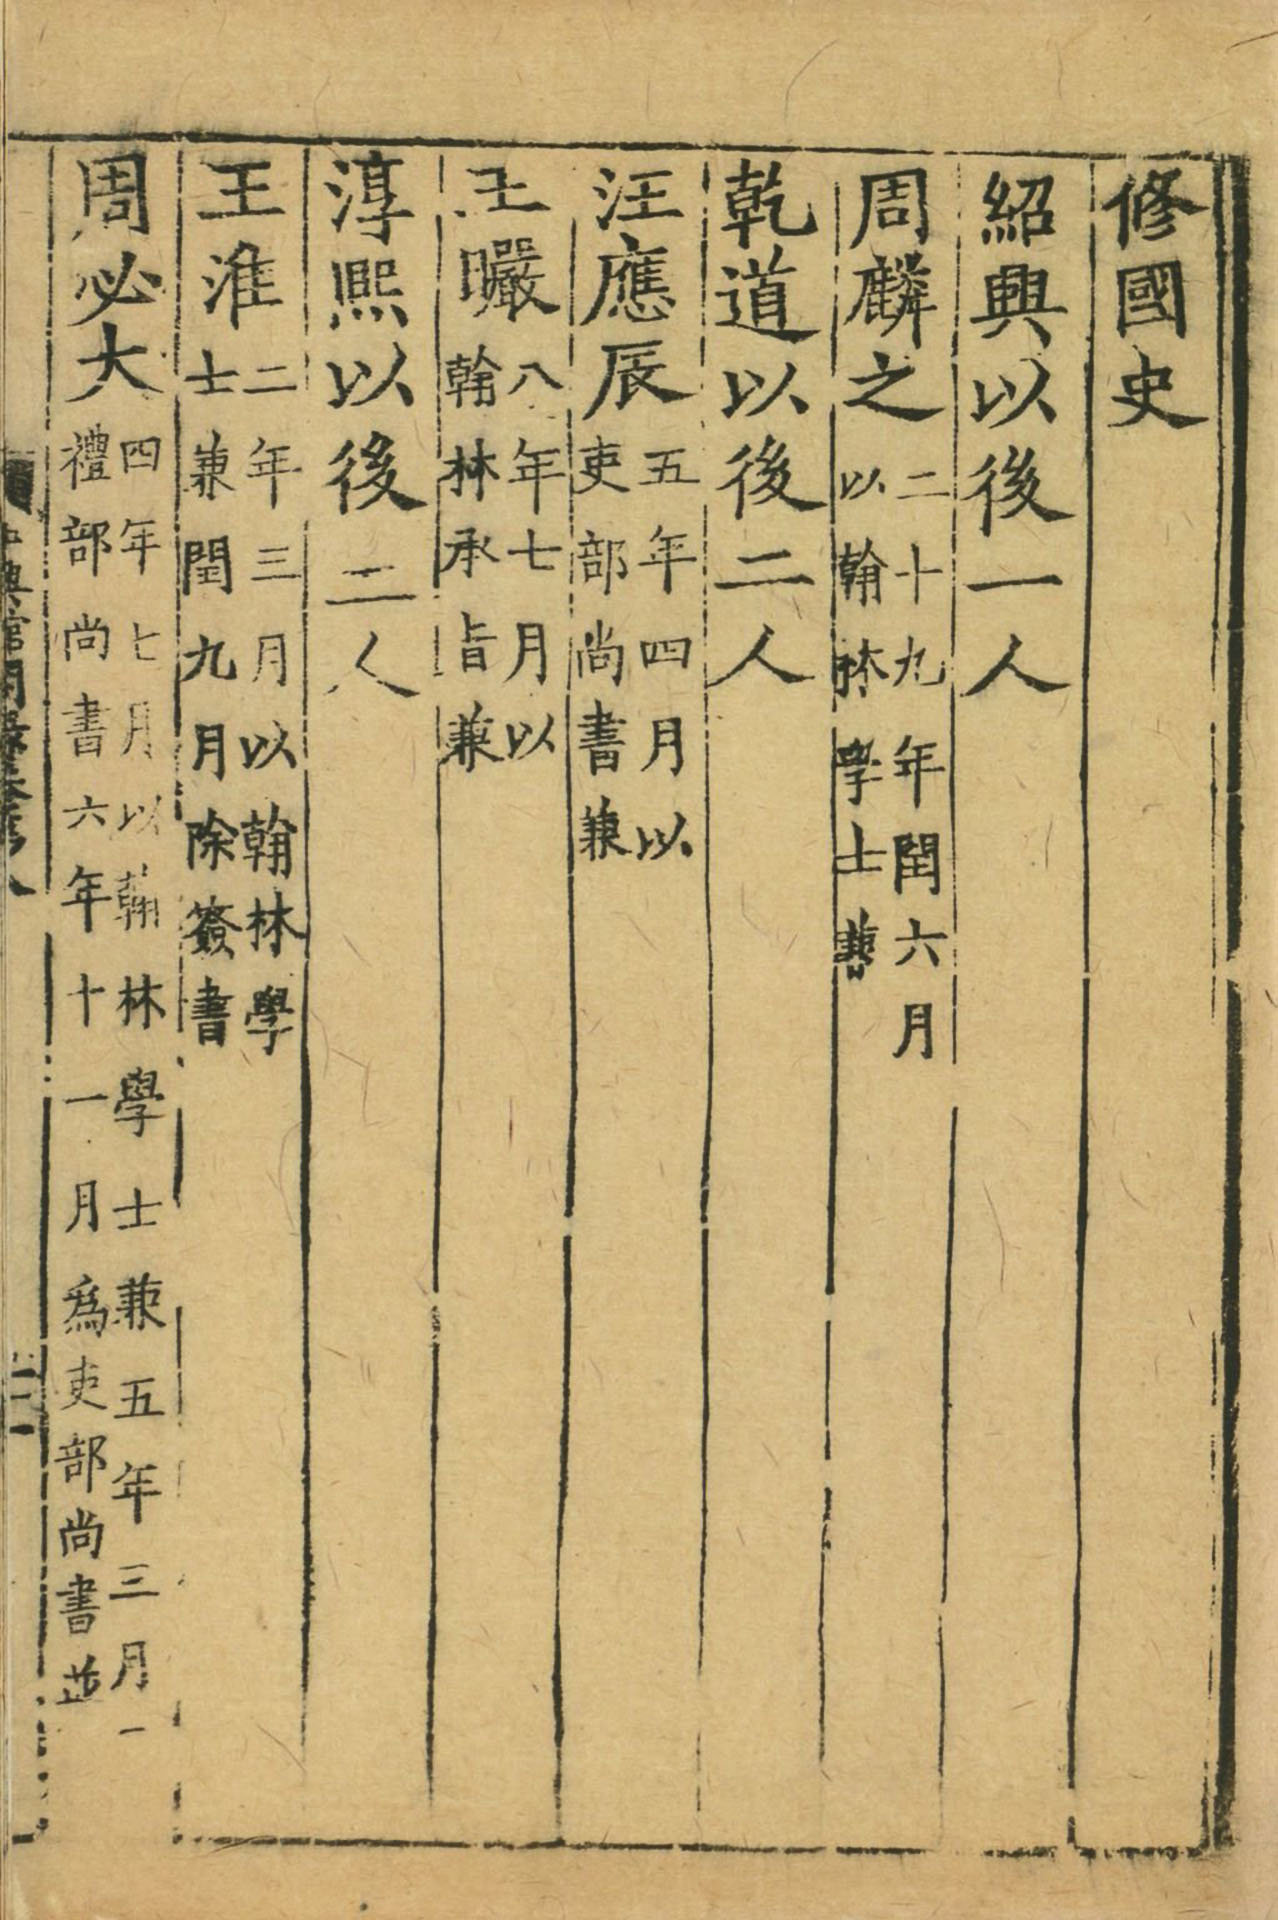 修國史
紹興以後一人
周麟之二十九年閏六月
以翰林學士兼
乾道以後二人
汪應辰五年四月以
吏部尚書兼
王曮八年七月以
翰林承旨兼
淳熙以後二人
王淮二年三月以翰林學
士兼閏九月除簽書
周必大四年七月以翰林學士兼五年三月
禮部尚書六年十一月爲吏部尚書並